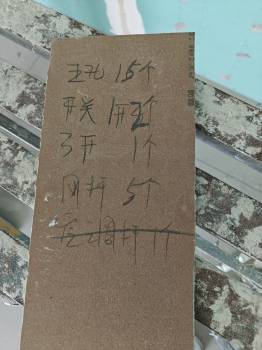 五孔 15个
开关 1开 个
3开 1个
网 5个
空调开 1个